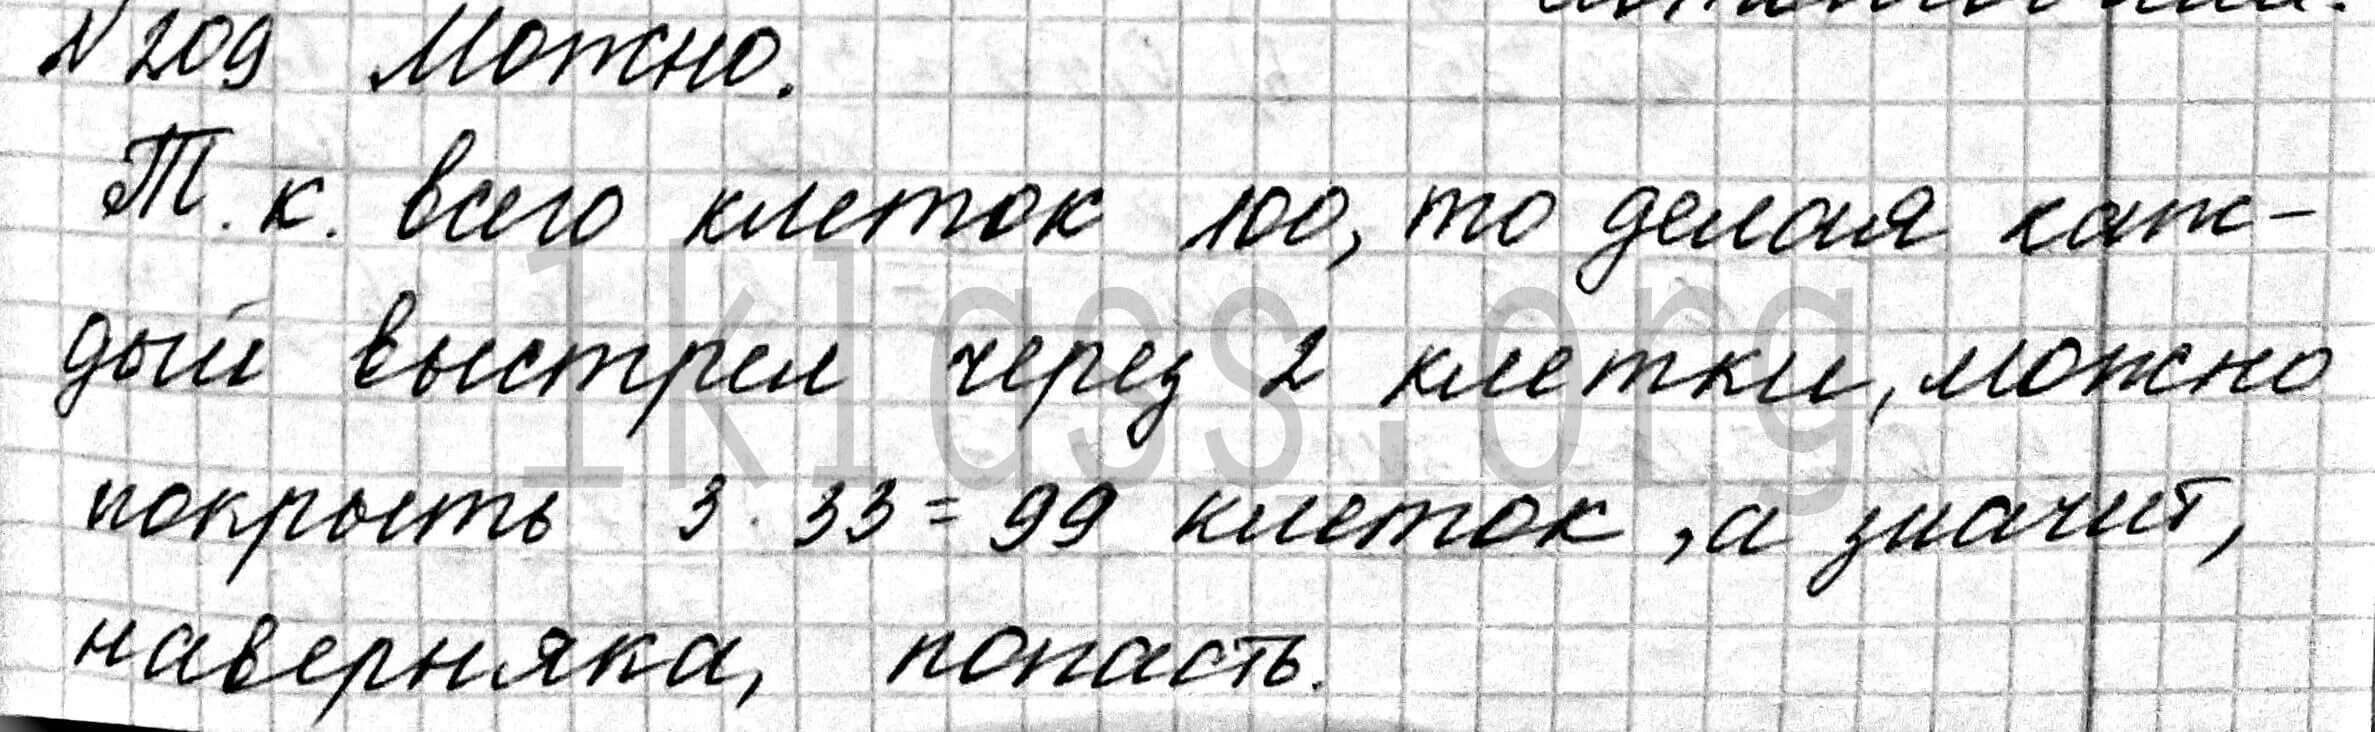 №209 Можно.
Т.к. всего клеток 100, то делая каж-
дый выстрел через 2 клетки, можно
покрыть 3·33=99 клеток, а значит,
наверняка, попасть.
1klass.org